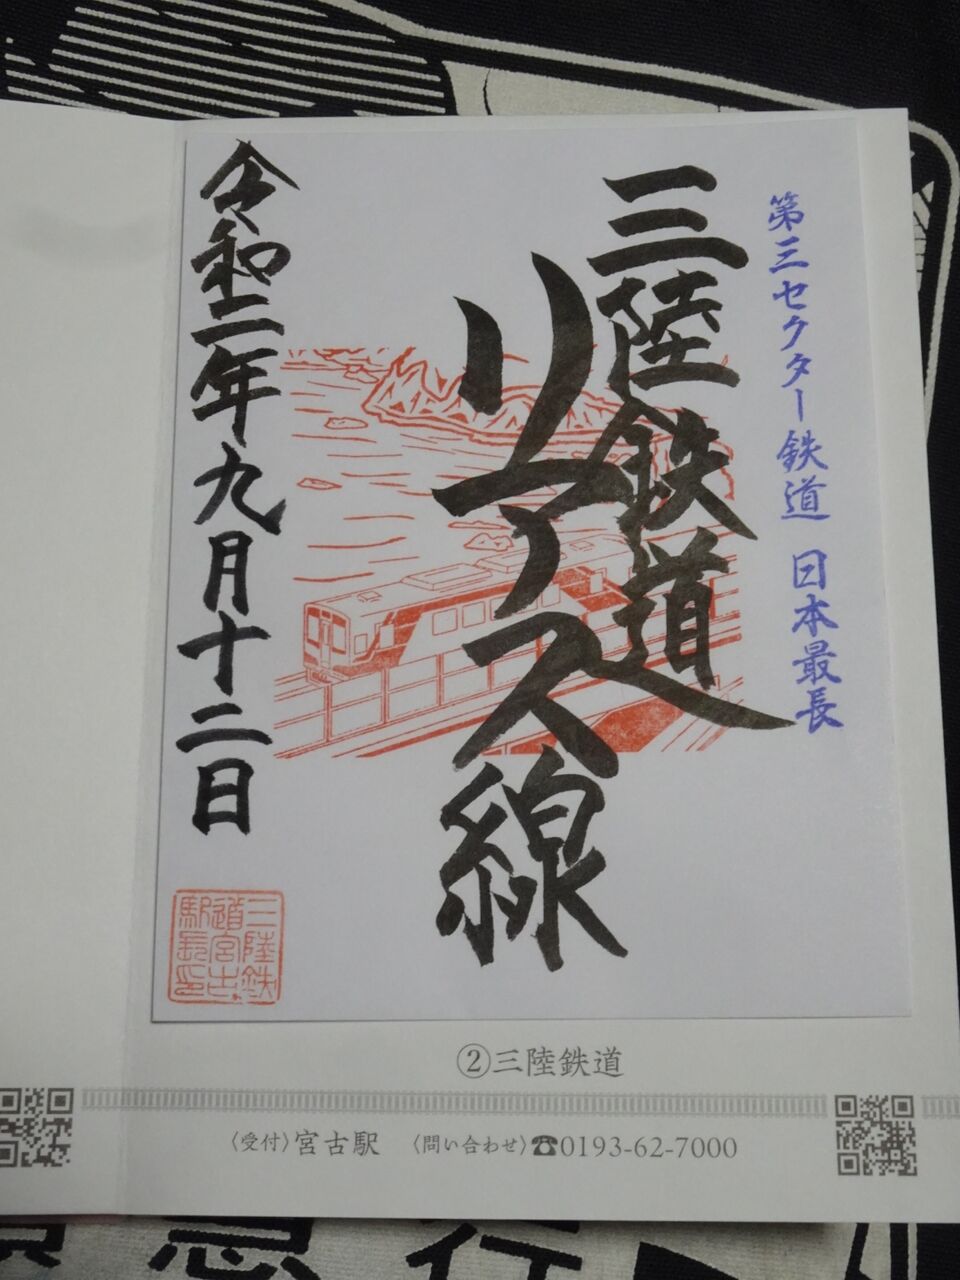 第三セクター鉄道 日本最長
三陸鉄道
リアス線
令和二年九月十二日
三陸鉄
道宮古
駅長印
②三陸鉄道
〈受付〉宮古駅 〈問い合わせ〉☎0193-62-7000
急行